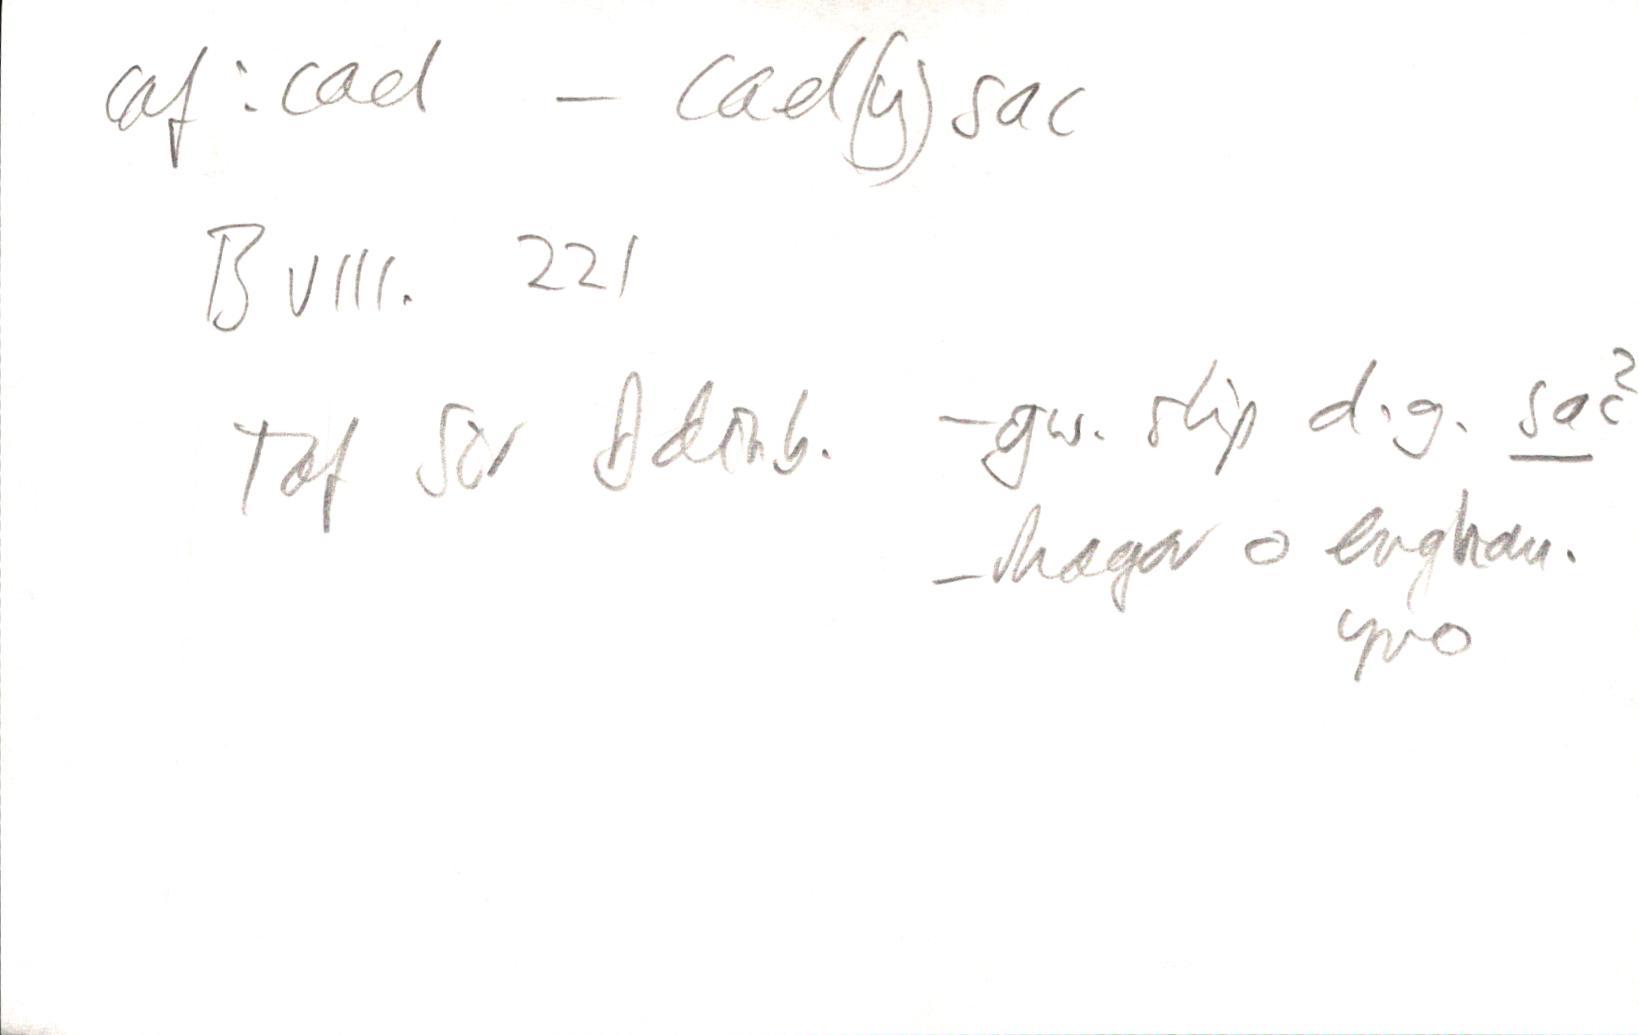 caf: cad – cad(y)sac
B VIII. 221
Taf Sir Ddinb. – gw. slip d.g. sac²
– rhagor o enghau.
yno